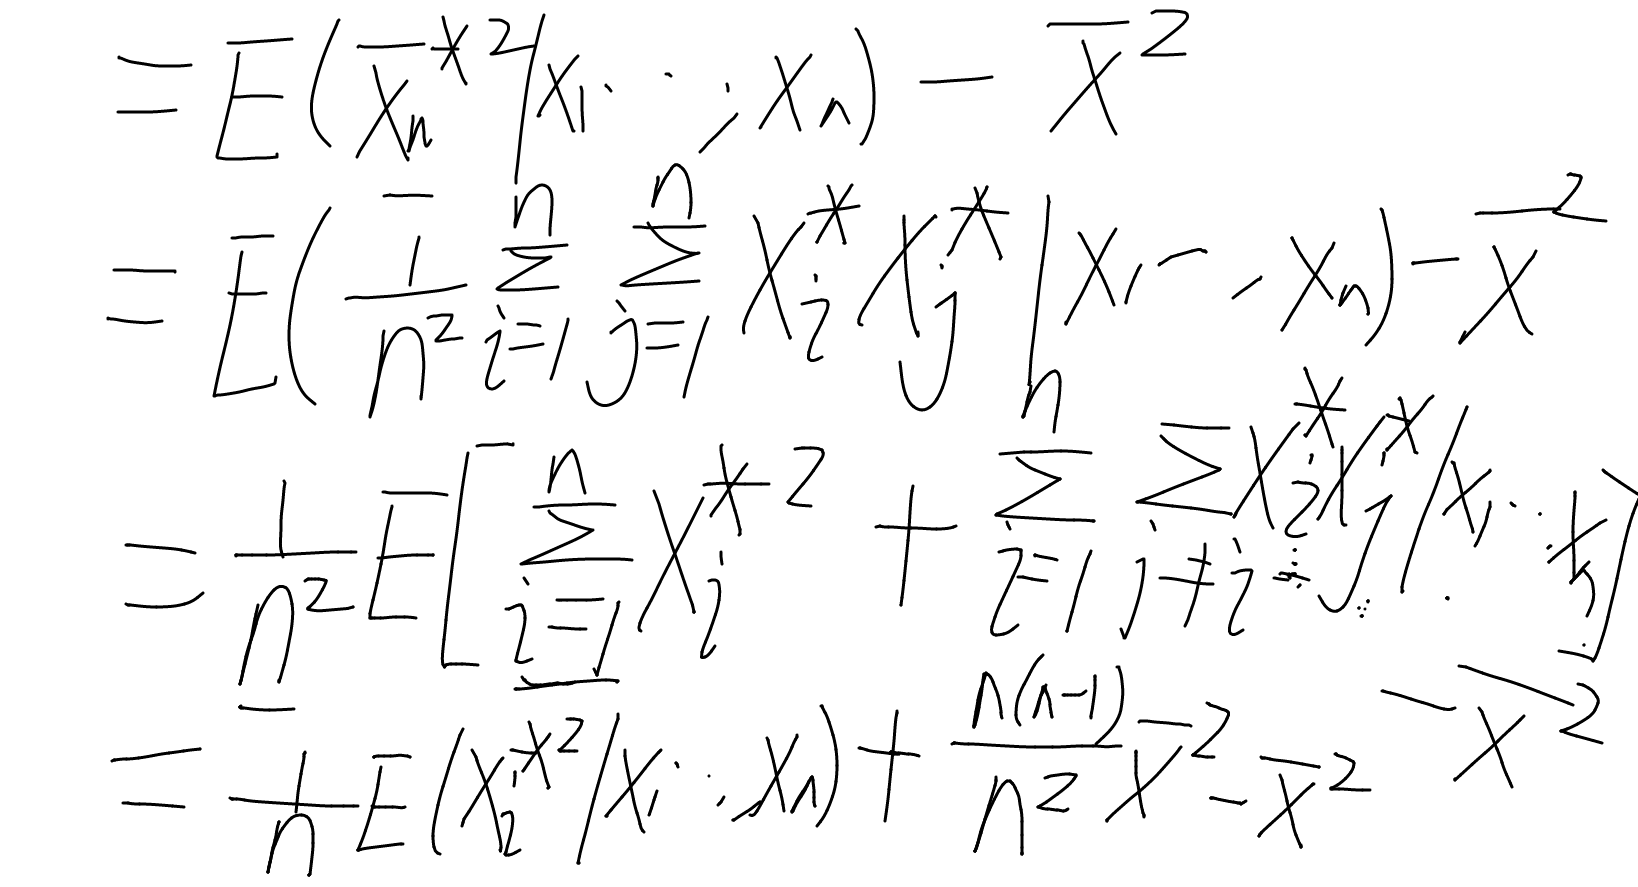 = E(X̄ₙ*² | X₁, …, Xₙ) − X̄²
= E(1/n² ∑ᵢ₌₁ⁿ ∑ⱼ₌₁ⁿ Xᵢ* Xⱼ* | X₁, …, Xₙ) − X̄²
= 1/n² E[∑ᵢ₌₁ⁿ Xᵢ*² + ∑ᵢ₌₁ⁿ ∑_{j≠i} Xᵢ* Xⱼ* | X₁, …, Xₙ] − X̄²
= 1/n E(Xᵢ*² | X₁, …, Xₙ) + n(n−1)/n² X̄² − X̄²